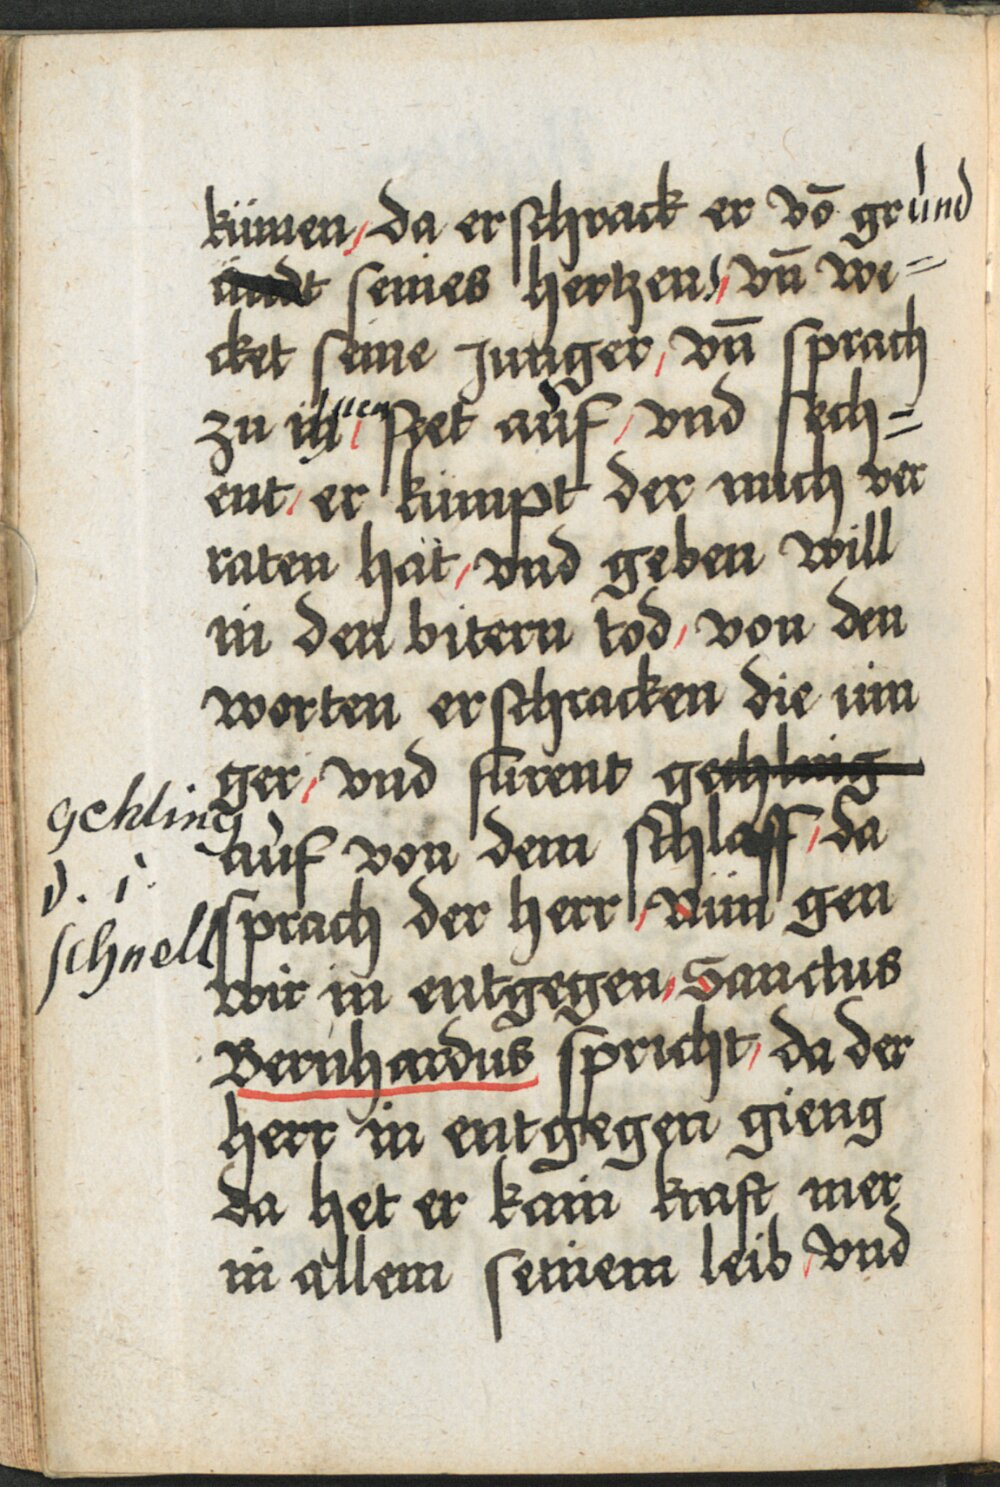 kümen, da erschrack er vō grund
seines hertzen, vñ we=
cket seine Junger, vñ sprach
zu stet auf, vnd sech=
ent, er kumpt der mich ver
raten hat, vnd geben will
in den bitern tod, von den
worten erschracken die iün
ger, vnd furent gechling
gehling
auf von dem schlaff, da
d. i.
sprach der herr, Nün gen
schnell
wir in entgegen, Sanctus
Bernhardus spricht, da der
herr in entgegen gieng
da het er kain kraft mer
in allem seinem leib, vnd